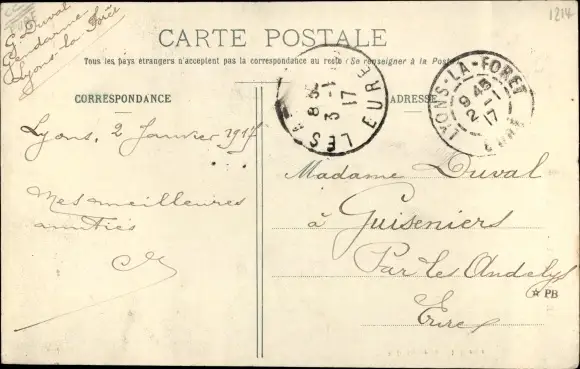 G Duval
Gendarme
Lyons-la-Forêt
1214
CARTE POSTALE
Tous les pays étrangers n'acceptent pas la correspondance au recto (Se renseigner à la Poste)
CORRESPONDANCE
ADRESSE
LES A
EURE
8 35
3 -1
17
LYONS-LA-FORET
EURE
9 45
2 -1
17
Lyons, 2 Janvier 1917
Mes meilleures
amitiés
Madame Duval
à Guiseniers
Par les Andelys
Eure
☆ PB